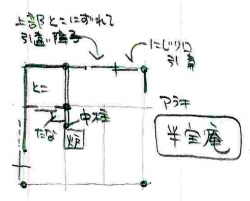 上部とこにずれて
引違い障子
にじり口
引違
とこ
中柱
たな
炉
アラキ
半宝庵